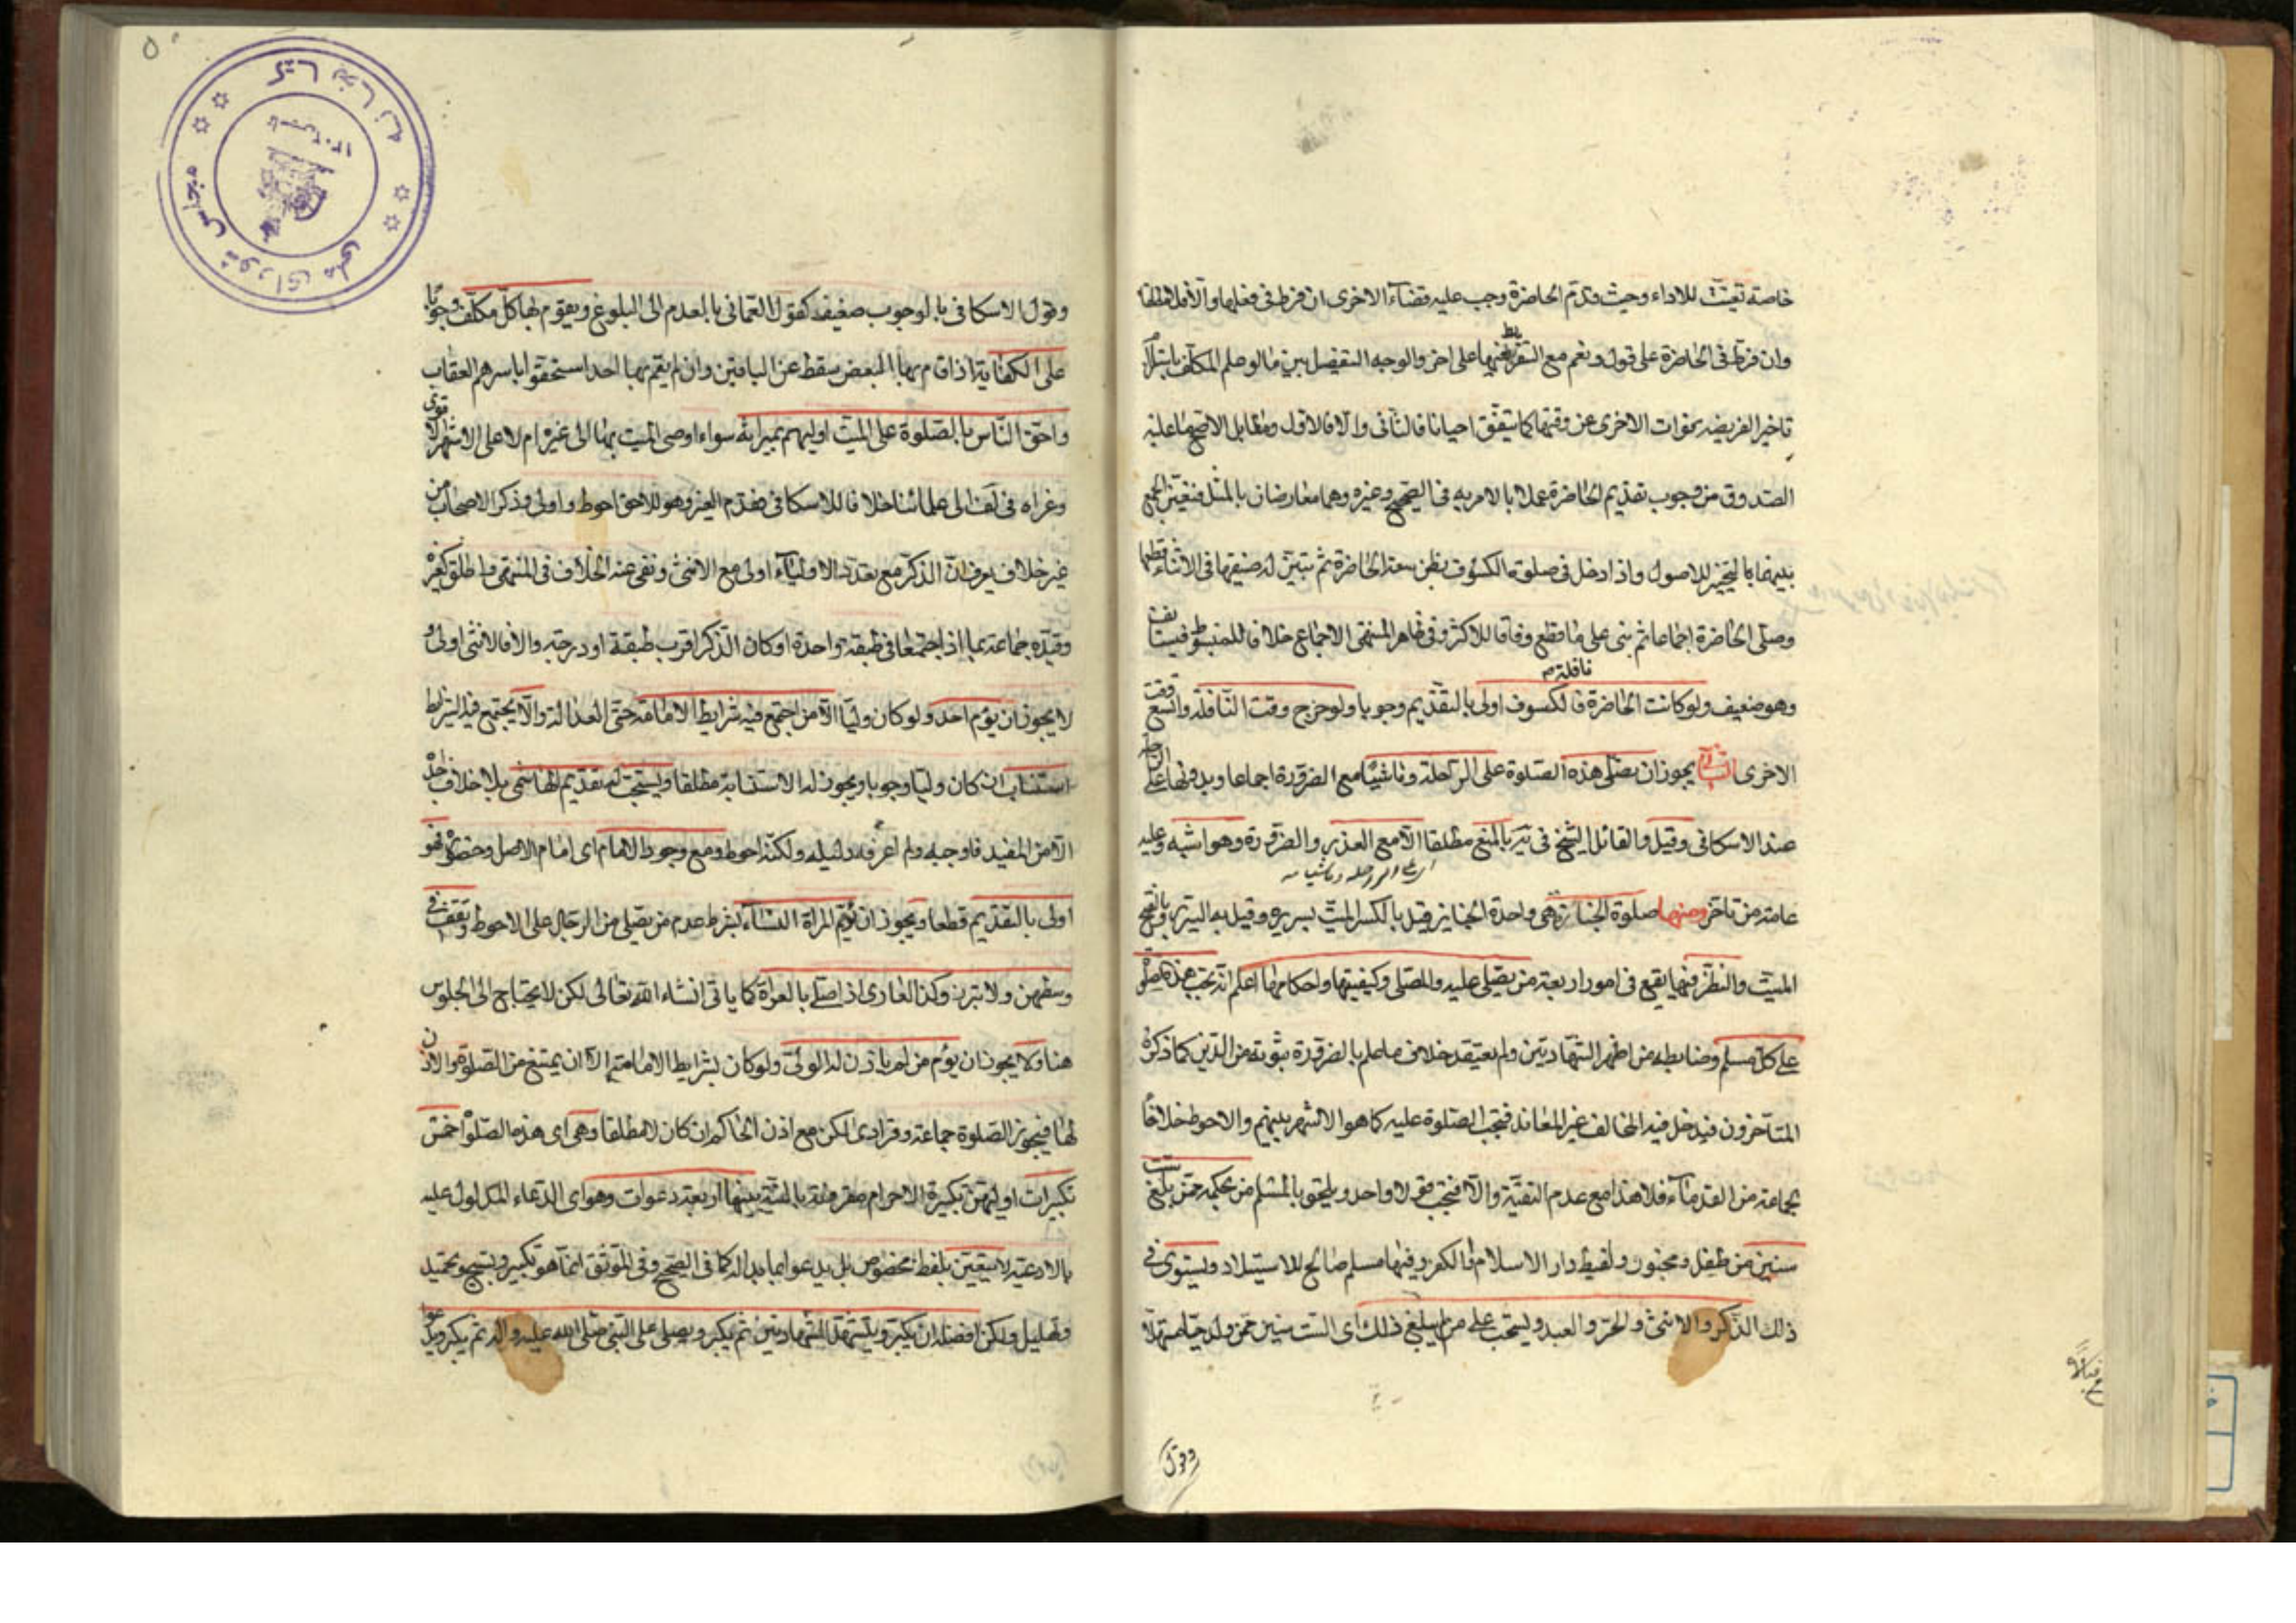 خاصة تعيّنت للاداء وحيث قدّم الحاضرة وجب عليه قضاء الاخرى ان فرط فى فعلها والّا فلا مطلقا
وان فرّط فى الحاضرة على قول ونعم مع التفريط فيها على اخر والوجه التفصيل بين ما لو علم المكلف بابتلاء
تاخير الفريضه بفوات الاخرى عن وقتها كما يتفق احيانا فالثانى والّا فالاول ومقابل الاصح ما عليه
الصدوق من وجوب تقديم الحاضرة عملا بالامر به فى الصحيح وغيره وهما معارضان بالمثل فتعيّن الجمع
بينهما بالتخيير للاصول واذا دخل فى صلوة الكسوف بظن سعة الحاضرة ثم تبيّن له ضيقها فى الاثناء قطعها
وصلى الحاضرة اجماعا ثم بنى على ما قطع وفاقا للاكثر وفى ظاهر المنتهى الاجماع خلافا للمبسوط فيستانف
وهو ضعيف ولو كانت الحاضرة نافلة فالكسوف اولى بالتقديم وجوبا ولو خرج وقت النافلة واتسع وقت
الاخرى يجوز ان يصلى هذه الصلوة على الراحلة وماشيا مع الضرورة اجماعا وبدونها على
عند الاسكافى وقيل والقائل الشيخ فى ير بالمنع مطلقا الّا مع العذر والضرورة وهو اشبه وعليه
اى على الراحلة وماشيا
عامة من تاخر ومنها صلوة الجنازة وهى واحدة الجنايز قيل بالكسر الميت بسريره وقيل به السرير وبالفتح
الميت والنظر فيها يقع فى امور اربعة من يصلى عليه والمصلى وكيفيتها واحكامها اعلم انه تجب هذه الصلوة
على كل مسلم وضابطه من اظهر الشهادتين ولم يعتقد خلاف ما علم بالضرورة ثبوته من الدّين كما ذكره
المتاخرون فيدخل فيه المخالف غير المعاند فتجب الصلوة عليه كما هو الاشهر بينهم والاحوط خلافا
لجماعة من القدماء فلا هذا مع عدم التقيّة والّا فتجب قولا واحدا ويلحق بالمسلم من بحكمه ممّن بلغ ست
سنين من طفل ومجنون ولقيط دار الاسلام والكفر وفيها مسلم صالح للاستيلاد ويستوى فى
ذلك الذكر والانثى والحرّ والعبد ويستحب على من لم يبلغ ذلك اى الست سنين ممّن ولد حيّا مستهلا
وقول
وقول الاسكافى بالوجوب ضعيف كقول العمانى بالعدم الى البلوغ ويقوم بها كلّ مكلّف وجوبا
على الكفاية اذا قام بها البعض سقط عن الباقين وان لم يقم بها احد استحقوا باسرهم العقاب
واحق النّاس بالصلوة على الميت اوليهم بميراثه سواء اوصى الميت بها الى غيره ام لا على الاشهر الاقوى
وعزاه فى لف الى علمائنا خلافا للاسكافى فقدم الغير وهو للاحق احوط واولى وذكر الاصحاب من
غير خلاف يعرف انّ الذكر مع تعدد الاولياء اولى مع الانثى ونفى عنه الخلاف فى المنتهى واطلق كغيره
وقيّده جماعة بما اذا اجتمعا فى طبقة واحدة او كان الذكر اقرب طبقة او درجة والّا فالانثى اولى و
لا يجوز ان يؤم احد ولو كان وليّا الّا من اجتمع فيه شرايط الامامة حتى العدالة والّا يجتمع فيه الشرايط
استناب ان كان وليا وجوبا ويجوز له الاستنابة مطلقا ويستحب له تقديم الهاشمى بلا خلاف اجده
الّا من المفيد فاوجبه ولم اعرف دليله ولكنه احوط ومع وجود الامام اى امام الاصل وحضوره فهو
اولى بالتقديم قطعا ويجوز ان تؤمّ المراة النساء بشرط عدم من يصلى من الرجال على الاحوط وتقف فى
وسطهن ولا تبرز وكذا العارى اذا صلى بالعراة كما ياتى انشاء الله تعالى لكن لا يحتاج الى الجلوس
هنا ولا يجوز ان يؤم من لم ياذن له الولى ولو كان بشرايط الامامة الّا ان يمتنع من الصلوة والاذن
لها فيجوز الصلوة جماعة وفرادى لكن مع اذن الحاكم ان كان لا مطلقا وهى اى هذه الصلوة خمس
تكبيرات اوليهن تكبيرة الاحرام مقرونة بالنيّة بينها اربعة دعوات وهو اى الدعاء المدلول عليه
بالادعية لا يتعيّن بلفظ مخصوص بل يدعو بما بدا له كما فى الصحيح وفى الموثق انما هو تكبير وتسبيح وتحميد
وتهليل ولكن افضله ان يكبّر ويتشهد الشهادتين ثم يكبر ويصلى على النبى صلى الله عليه واله ثم يكبر ويدعو
كتابخانه
مجلس شورای ملی